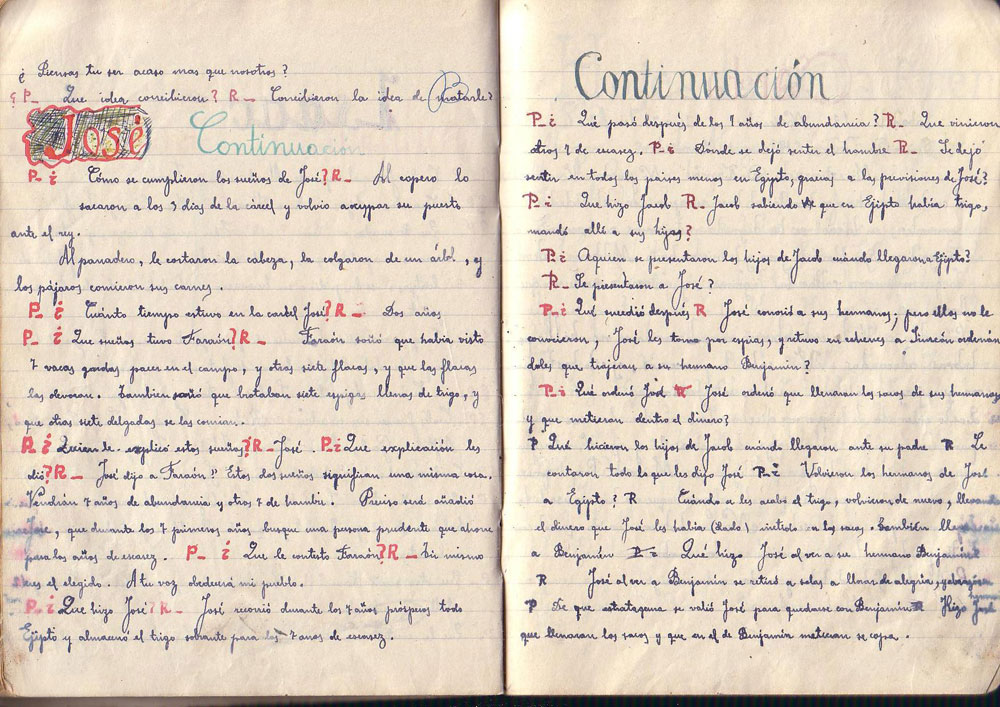 ¿ Piensas tu ser acaso mas que nosotros?
¿P_ Que idea concibieron? R_ Concibieron la idea de matarle?
José Continuación
P_ ¿ Cómo se cumplieron los sueños de José? R_ Al copero lo
sacaron a los 3 dias de la cárcel y volvio a ocupar su puesto
ante el rey.
Al panadero, le cortaron la cabeza, la colgaron de un árbol, y
los pájaros comieron sus carnes.
P_ ¿ Cuánto tiempo estuvo en la carcel José? R_ Dos años
P_ ¿ Que sueños tuvo Faraón? R_ Faraón soñó que habia visto
7 vacas gordas pacer en el campo, y otras siete flacas, y que las flacas
las devoran. Tambien soñó que brotaban siete espigas llenas de trigo, y
que otras siete delgadas se las comian.
P ¿ Quien le explicó estos sueños? R_ José. P_¿ Que explicación les
dió? R_ José dijo a Faraón: Estos dos sueños significan una misma cosa.
Vendrán 7 años de abundancia y otros 7 de hambre. Preciso será añadió
José, que durante los 7 primeros años busque una persona prudente que ahorre
para los años de escasez. P_ ¿ Que le contesto Faraón? R_ Tu mismo
eres el elegido. A tu voz obedecerá mi pueblo.
P_¿ Que hizo José? R_ José recorrió durante los 7 años prósperos todo
Ejipto y almacenó el trigo sobrante para los 7 anos de escasez.
Continuación
P_¿ Qué pasó después de los 7 años de abundancia? R_ Que vinieron
otros 7 de escasez. P_¿ Dónde se dejó sentir el hambre R_ Se dejó
sentir en todos los paises menos en Egipto, gracias a las previsiones de José?
P_¿ Que hizo Jacob R_ Jacob sabiendo que en Ejipto habia trigo,
mandó allí a sus hijos?
P_¿ A quien se presentaron los hijos de Jacob cuándo llegaron a Ejipto?
R_ Se presentaron a José?
P_¿ Qué sucedió después R José conoció a sus hermanos; pero ellos no le
conocieron, José les tomo por espias, y retuvo en rehenes a Simeón ordenán
doles que trajeran a su hermano Benjamín?
P_¿ Qué ordenó José R José ordenó que llenaran los sacos de sus hermanos
y que metieran dentro el dinero?
P Qué hicieron los hijos de Jacob cuándo llegaron ante su padre R Le
contaron todo lo que les dijo José P_¿ Volvieron los hermanos de José
a Egipto? R Cuándo se les acabó el trigo, volvieron de nuevo, llevando
el dinero que José les habia (dado) metido en los sacos. También
a Benjamín P_¿ Qué hizo José al ver a su hermano Benjamín
R José al ver a Benjamín se retiró a solas a llorar de alegria,
P De que estratagema se valió José para quedarse con Benjamín R Hizo José
que llenaran los sacos y que en el de Benjamín metieran su copa.